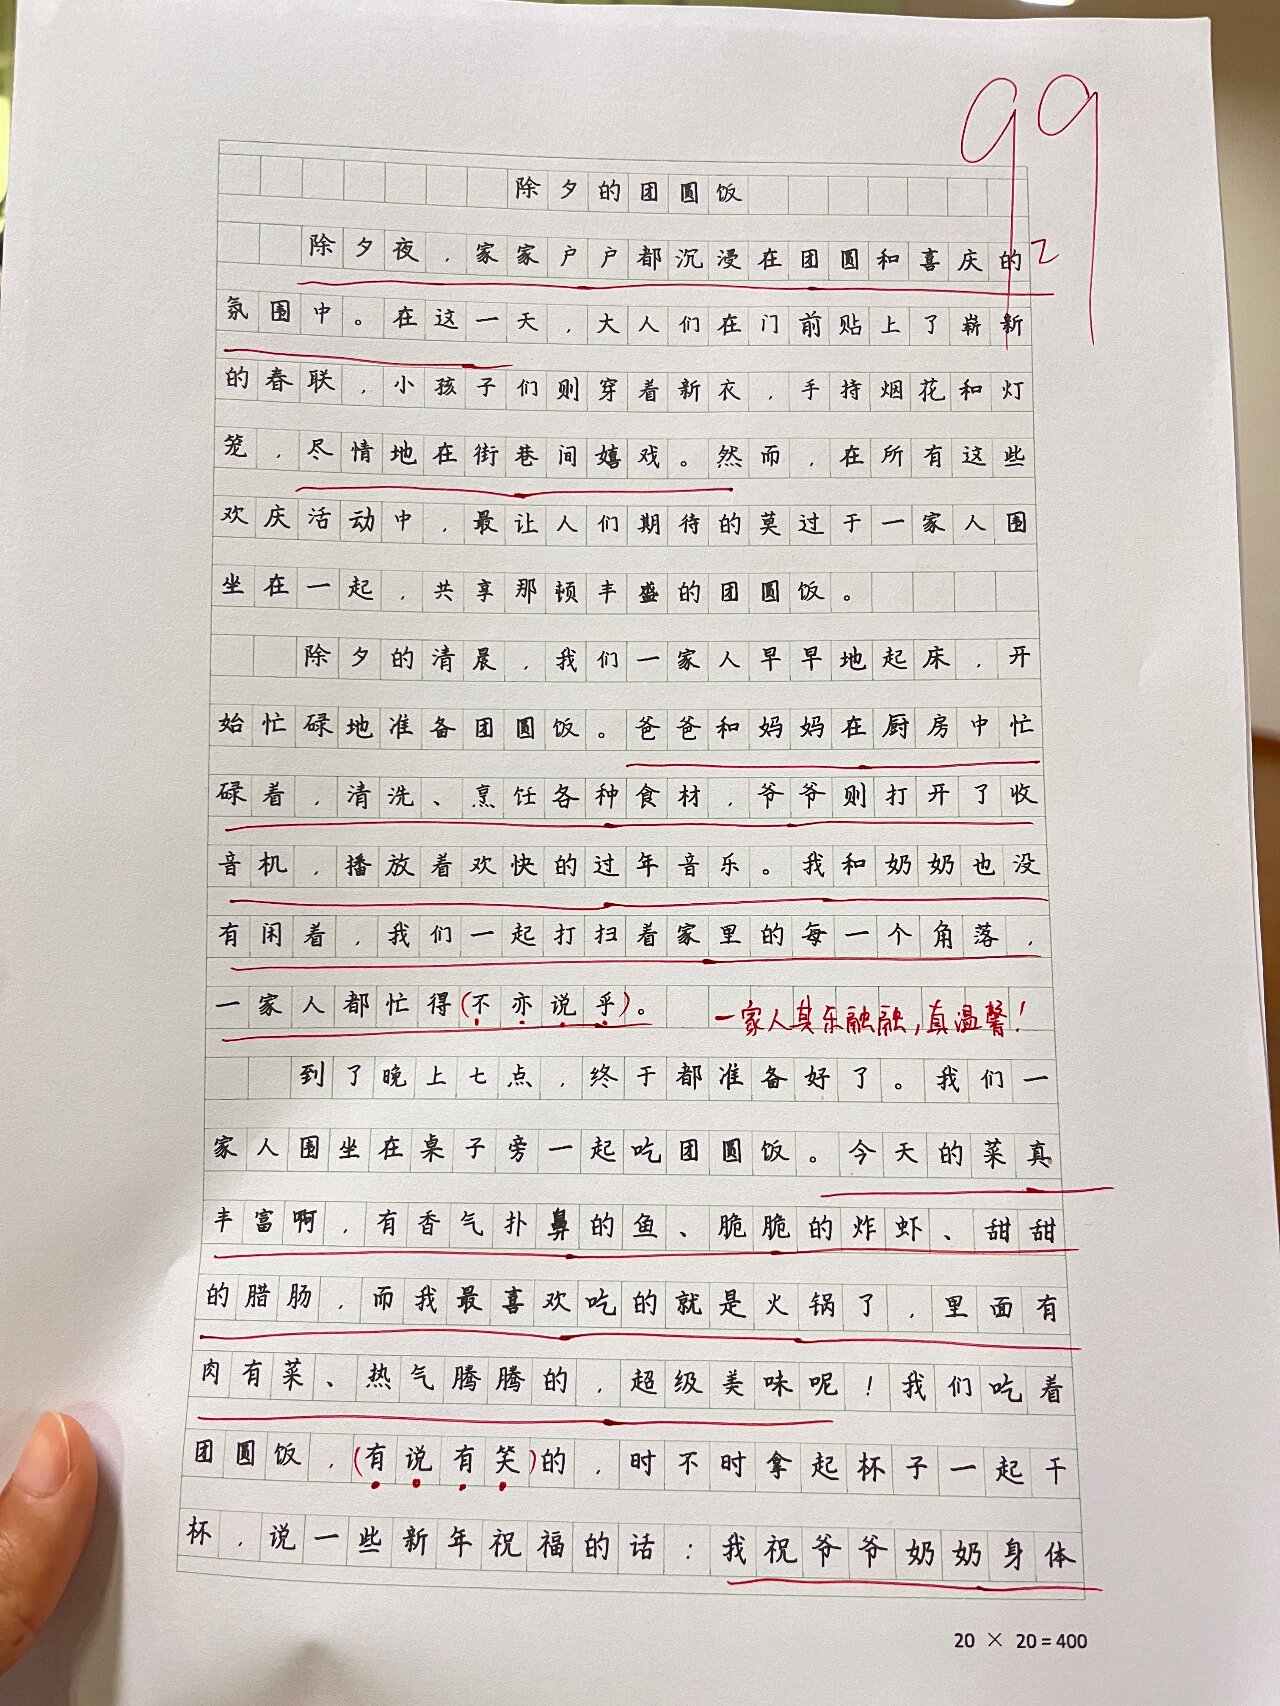 99
除夕的团圆饭
除夕夜，家家户户都沉浸在团圆和喜庆的
氛围中。在这一天，大人们在门前贴上了崭新
的春联，小孩子们则穿着新衣，手持烟花和灯
笼，尽情地在街巷间嬉戏。然而，在所有这些
欢庆活动中，最让人们期待的莫过于一家人围
坐在一起，共享那顿丰盛的团圆饭。
除夕的清晨，我们一家人早早地起床，开
始忙碌地准备团圆饭。爸爸和妈妈在厨房中忙
碌着，清洗、烹饪各种食材，爷爷则打开了收
音机，播放着欢快的过年音乐。我和奶奶也没
有闲着，我们一起打扫着家里的每一个角落，
一家人都忙得(不亦说乎)。 一家人其乐融融，真温馨！
到了晚上七点，终于都准备好了。我们一
家人围坐在桌子旁一起吃团圆饭。今天的菜真
丰富啊，有香气扑鼻的鱼、脆脆的炸虾、甜甜
的腊肠，而我最喜欢吃的就是火锅了，里面有
肉有菜、热气腾腾的，超级美味呢！我们吃着
团圆饭，(有说有笑)的，时不时拿起杯子一起干
杯，说一些新年祝福的话：我祝爷爷奶奶身体
20 × 20 = 400